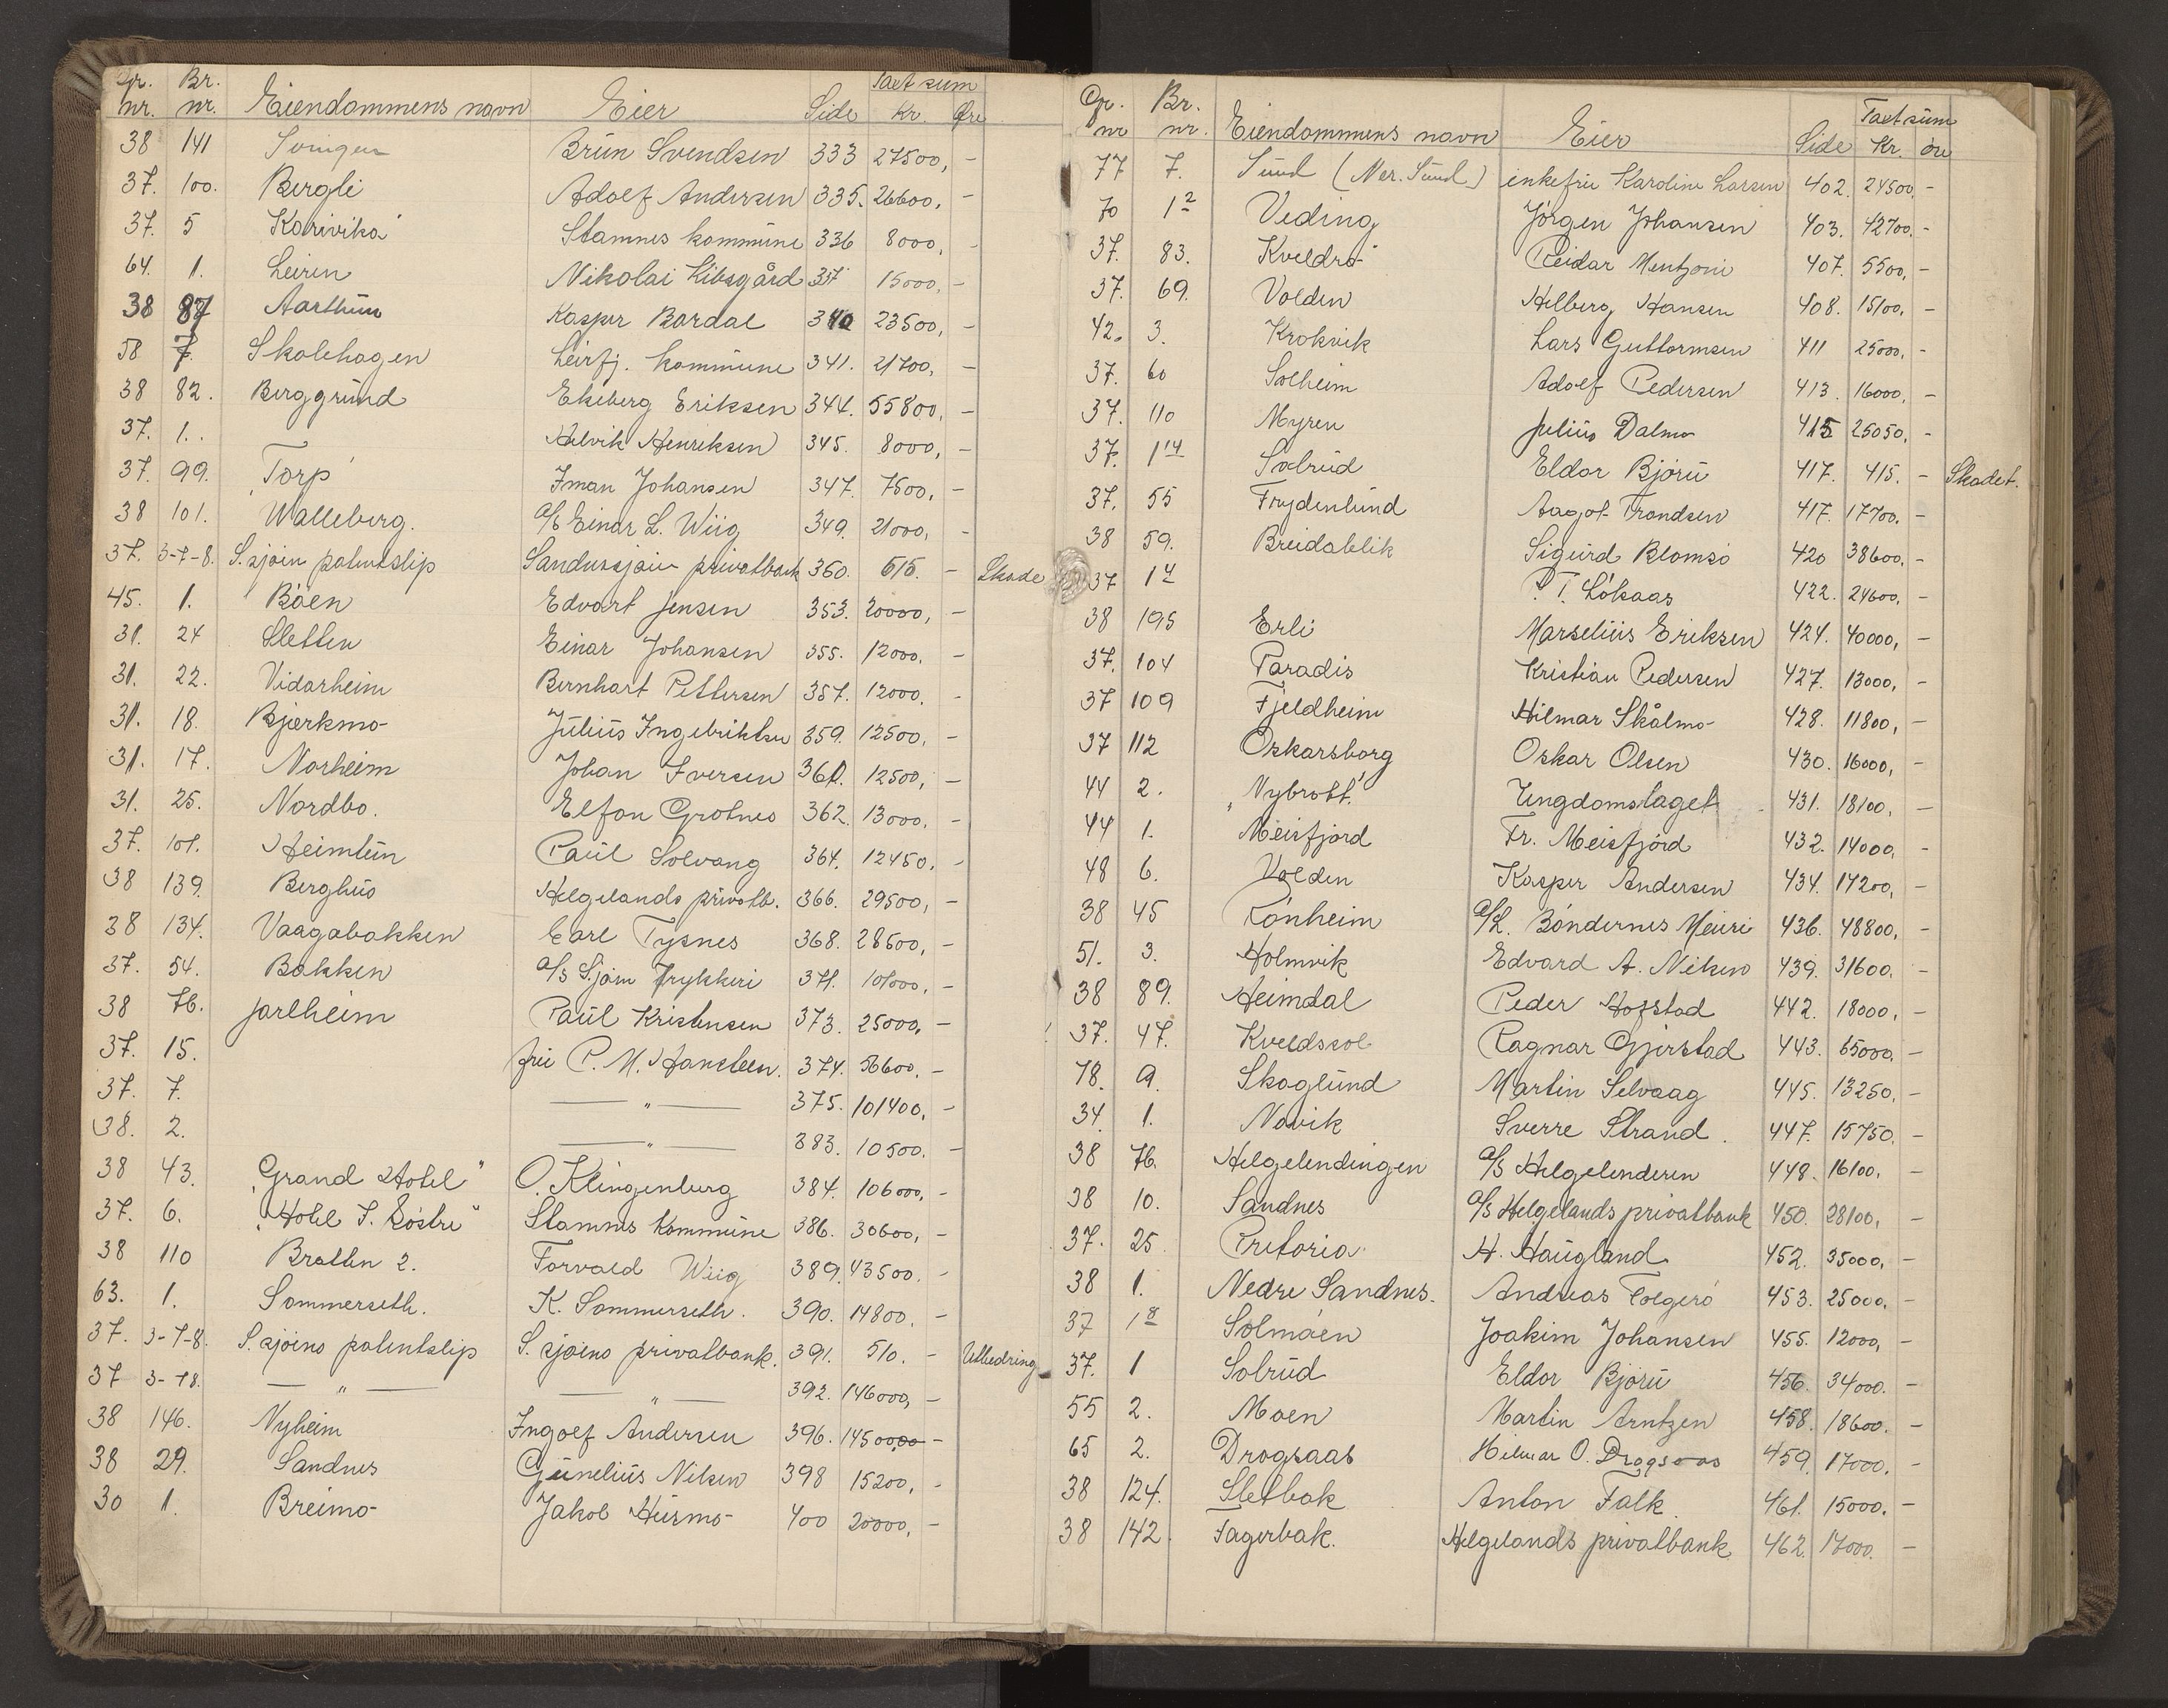 Gr. nr. Br. nr. Eiendommens navn Eier Side Taxt sum Kr. Øre
38 141 Brun Svendsen 333 27500, -
37. 100. Bergli Adolf Andersen 335. 26600, -
37. 5 Karivika Stamnes kommune 336 8000, -
64. 1. Leiren Nikolai Libsgård 337 15000, -
38 87 Aarthun Kasper Bardal 340 23500, -
58 7. Skolehagen Leirfj. kommune 341. 21700, -
38 82. Berggrund Ekeberg Eriksen 344. 55800, -
37. 1. Helvik Henriksen 345. 8000, -
37. 99. "Torp" Iman Johansen 347. 7500, -
38 101. Walleberg. a/s Einar L. Wiig 349. 21000, -
37. 3-7-8. S.sjøen patentslip Sandnessjøen privatbank 360. 615. - Skade
45. 1. Bøen Edvart Jensen 353. 20000, -
31. 24 Sletten Einar Johansen 355. 12000. -
31. 22. Vidarheim Bernhart Pettersen 357. 12000. -
31. 18. Bjerkmo Julius Ingebriktsen 359. 12500, -
31. 17. Norheim Johan Iversen 361. 12500, -
31. 25. Nordbo. Elfon Grotnes 362. 13000, -
37. 101. Heimtun Paul Solvang 364. 12450. -
38 139. Berghus Helgelands privatb. 366. 29500, -
38 134. Vaagabakken Carl Tysnes 368. 28500, -
37. 54. Bakken a/s S.sjøen Trykkeri 371. 101000, -
38 76. Jarlheim Paul Kristensen 373. 25000, -
37. 15. fru P. M. Hansteen. 374. 56600. -
37. 7. — " — 375. 101400, -
38. 2. — " — 383. 10500. -
38 43. "Grand Hotel" O. Klingenberg 384. 106000, -
37. 6. "Hotel S. Søstre" Stamnes kommune 386. 30600, -
38 110 Bratten 2. Torvald Wiig 389. 43500. -
63. 1. Sommerseth. K. Sommerseth. 390. 14800. -
37. 3-7-8. S.sjøens patentslip S.sjøens privatbank. 391. 510. - Utbedring
37 3-78. — " — — " — 392. 146000, -
38 146. Nyheim Ingolf Andersen 396. 14500,00 -
38 29. Sandnes Gunelius Nilsen 398 15200, -
30 1. Breimo Jakob Husmo 400 20000, -
Gr. nr Br. nr. Eiendommens navn Eier Side Taxt sum Kr. øre
77 7. Sund (Ner. Sund) enkefru Karoline Larsen 402. 24500. -
70 12 Veding Jørgen Johansen 403. 42700. -
37. 83. Kveldro Reidar Mentzoni 407. 5500, -
37. 69. Volden Hilberg Hansen 408. 15100, -
42. 3. Krokvik Lars Guttormsen 411 25000, -
37. 60 Solheim Adolf Pedersen 413. 16000, -
37. 110 Myren Julius Dalmo 415 25050, -
37. 114 Solrud Eldor Bjøru 417. 415. - Skadet.
37. 55 Frydenlund Aagot Trondsen 417. 17700. -
38 59. Breidablik Sigurd Blomsø 420 38600. -
37 14 P. T. Løkaas 422. 24600, -
38 195 Erli Marselius Eriksen 424. 40000, -
37. 104 Paradis Kristian Pedersen 427. 13000, -
37 109 Fjeldheim Hilmar Skålmo 428. 11800, -
37 112 Oskarsborg Oskar Olsen 430. 16000, -
44 2. "Nybrott" Ungdomslaget 431. 18100, -
44 1. Meisfjord Fr. Meisfjord 432. 14000, -
48 6. Volden Kasper Andersen 434. 17200, -
38 45 Rønheim a/L. Bøndernes Meieri 436. 48800, -
51. 3. Holmvik Edvard A. Nilsen 439. 31600. -
38 89. Heimdal Peder Hofstad 442. 18000. -
37. 47. Kveldssol Ragnar Gjerstad 443. 65000. -
78. 9. Skoglund Martin Selvaag 445. 13250. -
34. 1. Novik Sverre Strand. 447. 15750. -
38 76. Helgelendingen a/s Helgelenderen 448. 16100, -
38 10. Sandnes a/s Helgelands privatbank 450. 28100, -
37. 25. Pretoria H. Haugland 452. 35000, -
38 1. Nedre Sandnes. Andreas Tolgerø 453. 25000. -
37 18 Solmoen Joakim Johansen 455. 12000, -
37. 1 Solrud Eldor Bjøru 456. 34000. -
55 2. Moen Martin Arntzen 458. 18600. -
65 2. Drogsaas Hilmar O. Drogsaas 459. 17000. -
38 124. Sletbak Anton Falk. 461. 15000. -
38 142. Fagerbak. Helgelands privatbank 462. 17000. -